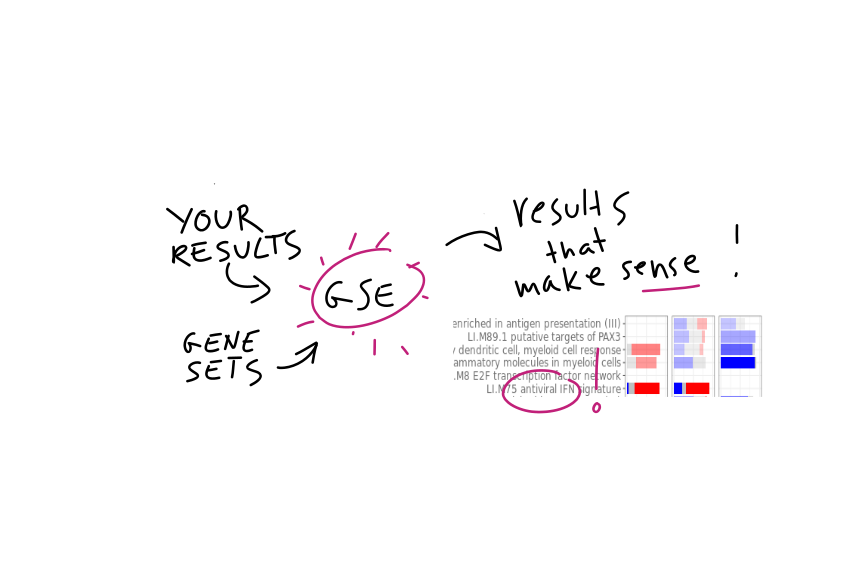 YOUR
RESULTS
GENE
SETS
GSE
results
that
make sense !
enriched in antigen presentation (III)
LI.M89.1 putative targets of PAX3
dendritic cell, myeloid cell response
ammatory molecules in myeloid cells
.M8 E2F transcription factor network
LI.M75 antiviral IFN signature
!